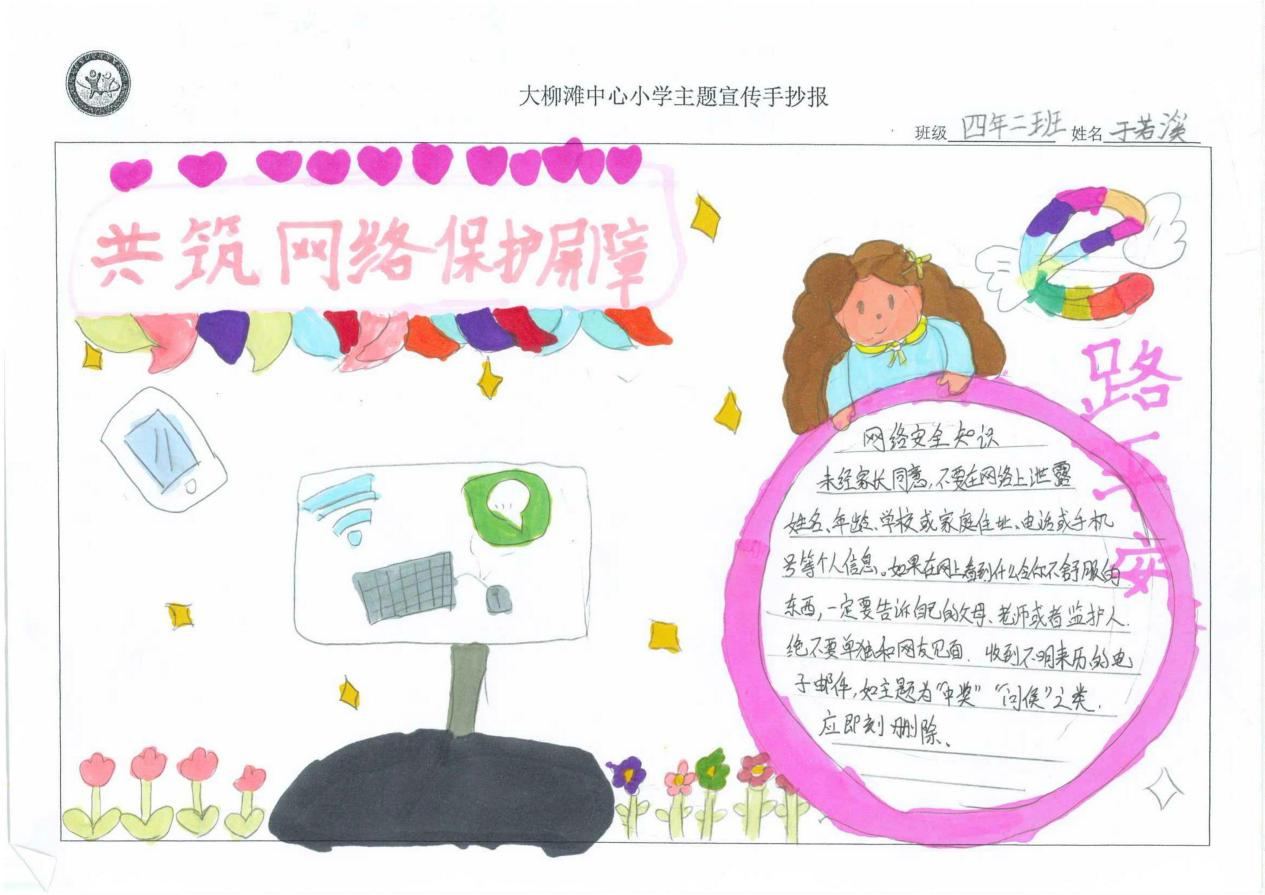 大柳滩中心小学主题宣传手抄报
班级 四年二班 姓名 于若溪
共筑网络保护屏障
e
路平安
网络安全知识
未经家长同意,不要在网络上泄露
姓名、年龄、学校或家庭住址、电话或手机
号等个人信息。如果在网上看到什么令你不舒服的
东西,一定要告诉自己的父母、老师或者监护人.
绝不要单独和网友见面. 收到不明来历的电
子邮件,如主题为“中奖”“问候”之类.
应即刻删除、